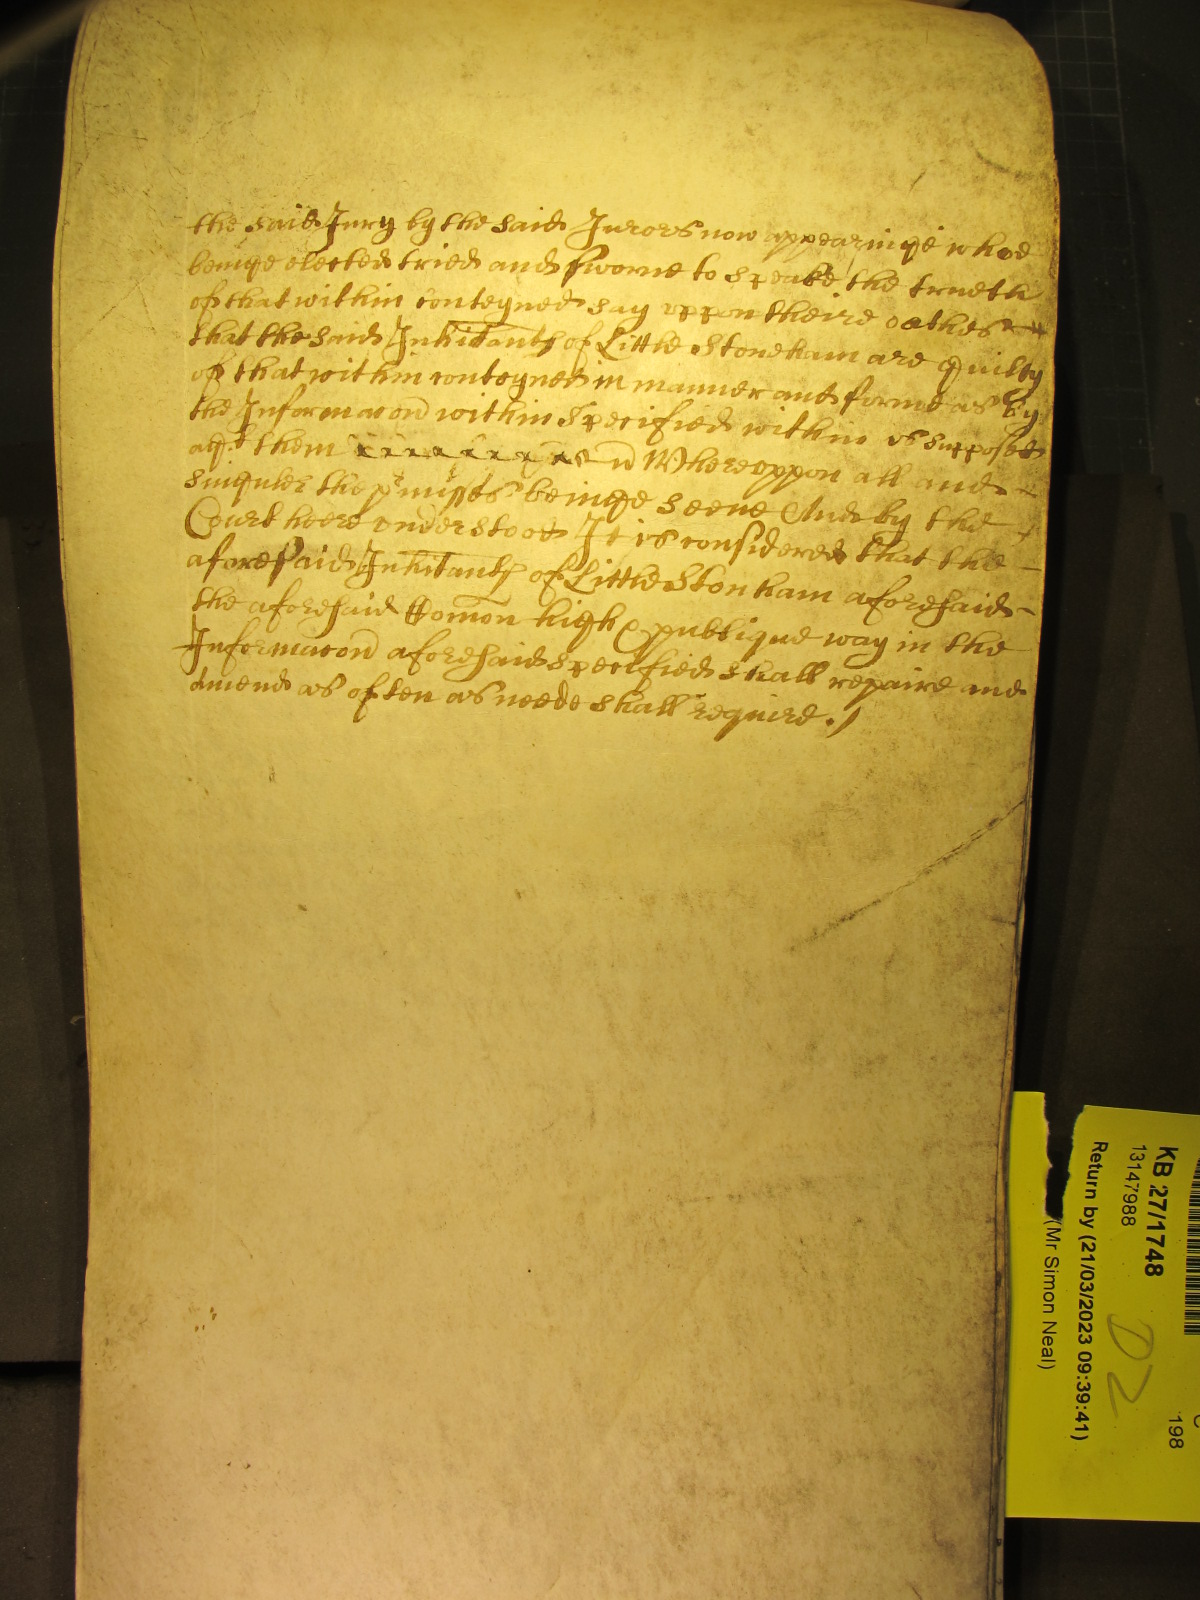 the said Jury by the said Jurors now appearinge whoe
beinge elected tried and sworne to speake the trueth
of that within conteyned say uppon theire oathes
that the said Inhitants of Little Stoneham are guilty
of that within conteyned in manner and forme as by
the Informacon within specified within is supposed
agt them Whereuppon all and
singuler the pmisses beinge seene And by the
Court heere understood It is considered that the
aforesaid Inhitants of Little Stonham aforesaid
the aforesaid Comon high & publique way in the
Informacon aforesaid specified shall repaire and
amend as often as neede shall require.
KB 27/1748
13147988
Return by (21/03/2023 09:39:41)
(Mr Simon Neal)
D2
198